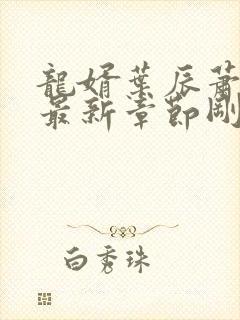 龍婿葉辰蕭
最新章節剛
白秀珠